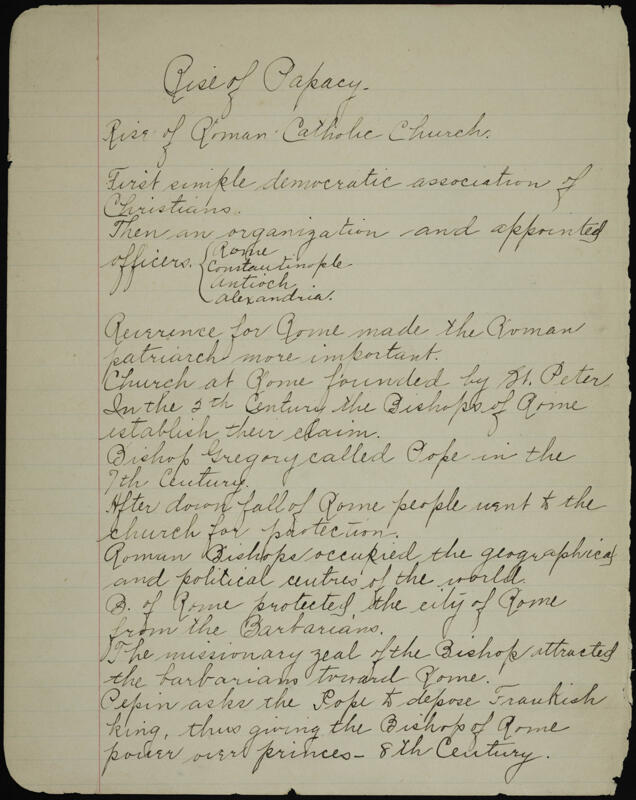 Rise of Papacy.
Rise of Roman Catholic Church.
First simple democratic association of
Christians.
Then an organization and appointed
officers. { Rome
Constantinople
Antioch
Alexandria.
Reverence for Rome made the Roman
patriarch more important.
Church at Rome founded by St. Peter.
In the 5th Century the Bishops of Rome
establish their claim.
Bishop Gregory called Pope in the
7th Century.
After down fall of Rome people went to the
church for protection.
Roman Bishops occupied the geographical
and political centres of the world.
B. of Rome protected the city of Rome
from the Barbarians.
The missionary zeal of the Bishop attracted
the barbarians toward Rome.
Pepin asks the Pope to depose Frankish
king, thus giving the Bishop of Rome
power over princes - 8th Century.